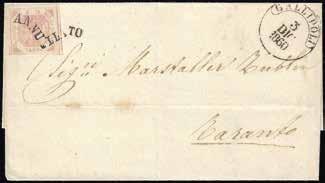 ANNULLATO
GALLIPOLI
3
DIC.
1860
Marstaller
Taranto